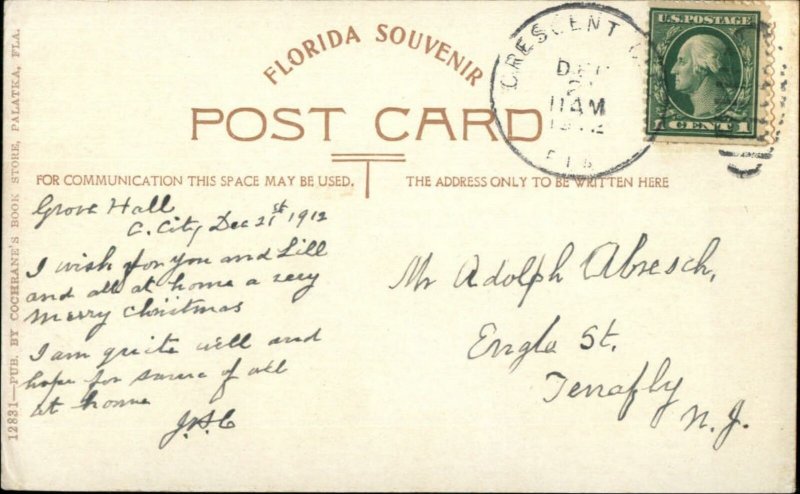 FLORIDA SOUVENIR
POST CARD
FOR COMMUNICATION THIS SPACE MAY BE USED.
THE ADDRESS ONLY TO BE WRITTEN HERE
12831—PUB. BY COCHRANE'S BOOK STORE, PALATKA, FLA.
CRESCENT
DEC
11 AM
1912
FLA
U.S. POSTAGE
1 CENT 1
Grove Hall
C. City Dec 21st 1912
I wish for you and Lill
and all at home a very
Merry Christmas
I am quite well and
hope for same of all
at home
Mr Adolph Abresch,
Engle St.
Tenafly
N. J.